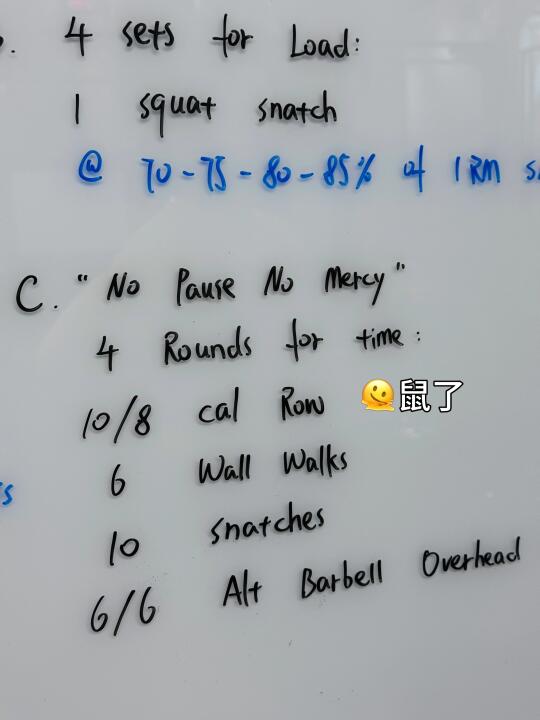 4 sets for Load:
1 squat snatch
@ 70-75-80-85% of 1RM
C. "No Pause No Mercy"
4 Rounds for time:
10/8 cal Row
🫠鼠了
6 Wall Walks
10 snatches
6/6 Alt Barbell Overhead